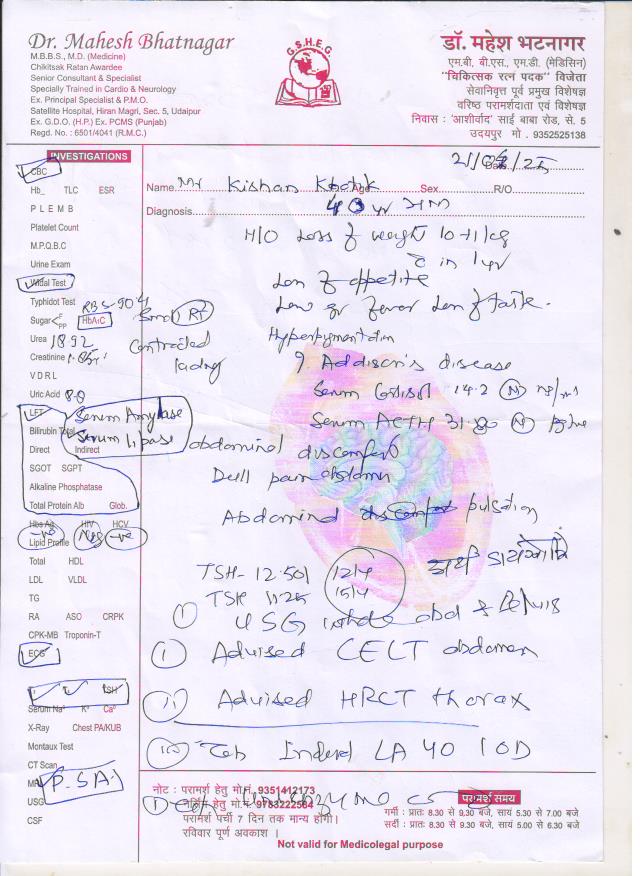 Dr. Mahesh Bhatnagar
M.B.B.S., M.D. (Medicine)
Chikitsak Ratan Awardee
Senior Consultant & Specialist
Specially Trained in Cardio & Neurology
Ex. Principal Specialist & P.M.O.
Satellite Hospital, Hiran Magri, Sec. 5, Udaipur
Ex. G.D.O. (H.P.) Ex. PCMS (Punjab)
Regd. No. : 6501/4041 (R.M.C.)
G.S.H.E.G.
डॉ. महेश भटनागर
एम.बी. बी.एस., एम.डी. (मेडिसिन)
"चिकित्सक रत्न पदक" विजेता
सेवानिवृत्त पूर्व प्रमुख विशेषज्ञ
वरिष्ठ परामर्शदाता एवं विशेषज्ञ
निवास : 'आशीर्वाद' साईं बाबा रोड, से. 5
उदयपुर मो . 9352525138
INVESTIGATIONS
CBC
Hb_ TLC ESR
P L E M B
Platelet Count
M.P.Q.B.C
Urine Exam
Widal Test
Typhidot Test RBS-90
Sugar F PP HbA1C
Urea 18.92
Creatinine
V D R L
Uric Acid 8.0
LFT Serum Amylase
Bilirubin Total Serum Lipase
Direct Indirect
SGOT SGPT
Alkaline Phosphatase
Total Protein Alb Glob.
Hbs Ag HIV HCV
-ve Neg -ve
Lipid Profile
Total HDL
LDL VLDL
TG
RA ASO CRPK
CPK-MB Troponin-T
ECG
TSH
Serum Na K Ca
X-Ray Chest PA/KUB
Montaux Test
CT Scan
MRI P.SA
USG
CSF
Date 21/ /25
Name Mr Kishan Age Sex R/O
Diagnosis 40 yr
H/O Loss of weight 10-11 kg
in 1 yr
Loss of appetite
Low gr fever Loss of taste.
Small Rt
Contracted kidney
Hyperpigmentation
?. Addison's disease
Serum Cortisol 14.2 N
Serum ACTH 31.80 N
abdominal discomfort
Dull pain abdomen
Abdominal pulsation
TSH-12.501 12/4
TSH 11.25 15/4
USG whole abd & Pelvis
Advised CECT abdomen
Advised HRCT thorax
Tab Inderal LA 40 1OD
नोट : परामर्श हेतु मो.नं. 9351412173
हेतु मो.नं. 9783222584
परामर्श पर्ची 7 दिन तक मान्य होगी।
रविवार पूर्ण अवकाश ।
परामर्श समय
गर्मी : प्रातः 8.30 से 9.30 बजे, सायं 5.30 से 7.00 बजे
सर्दी : प्रातः 8.30 से 9.30 बजे, सायं 5.00 से 6.30 बजे
Not valid for Medicolegal purpose